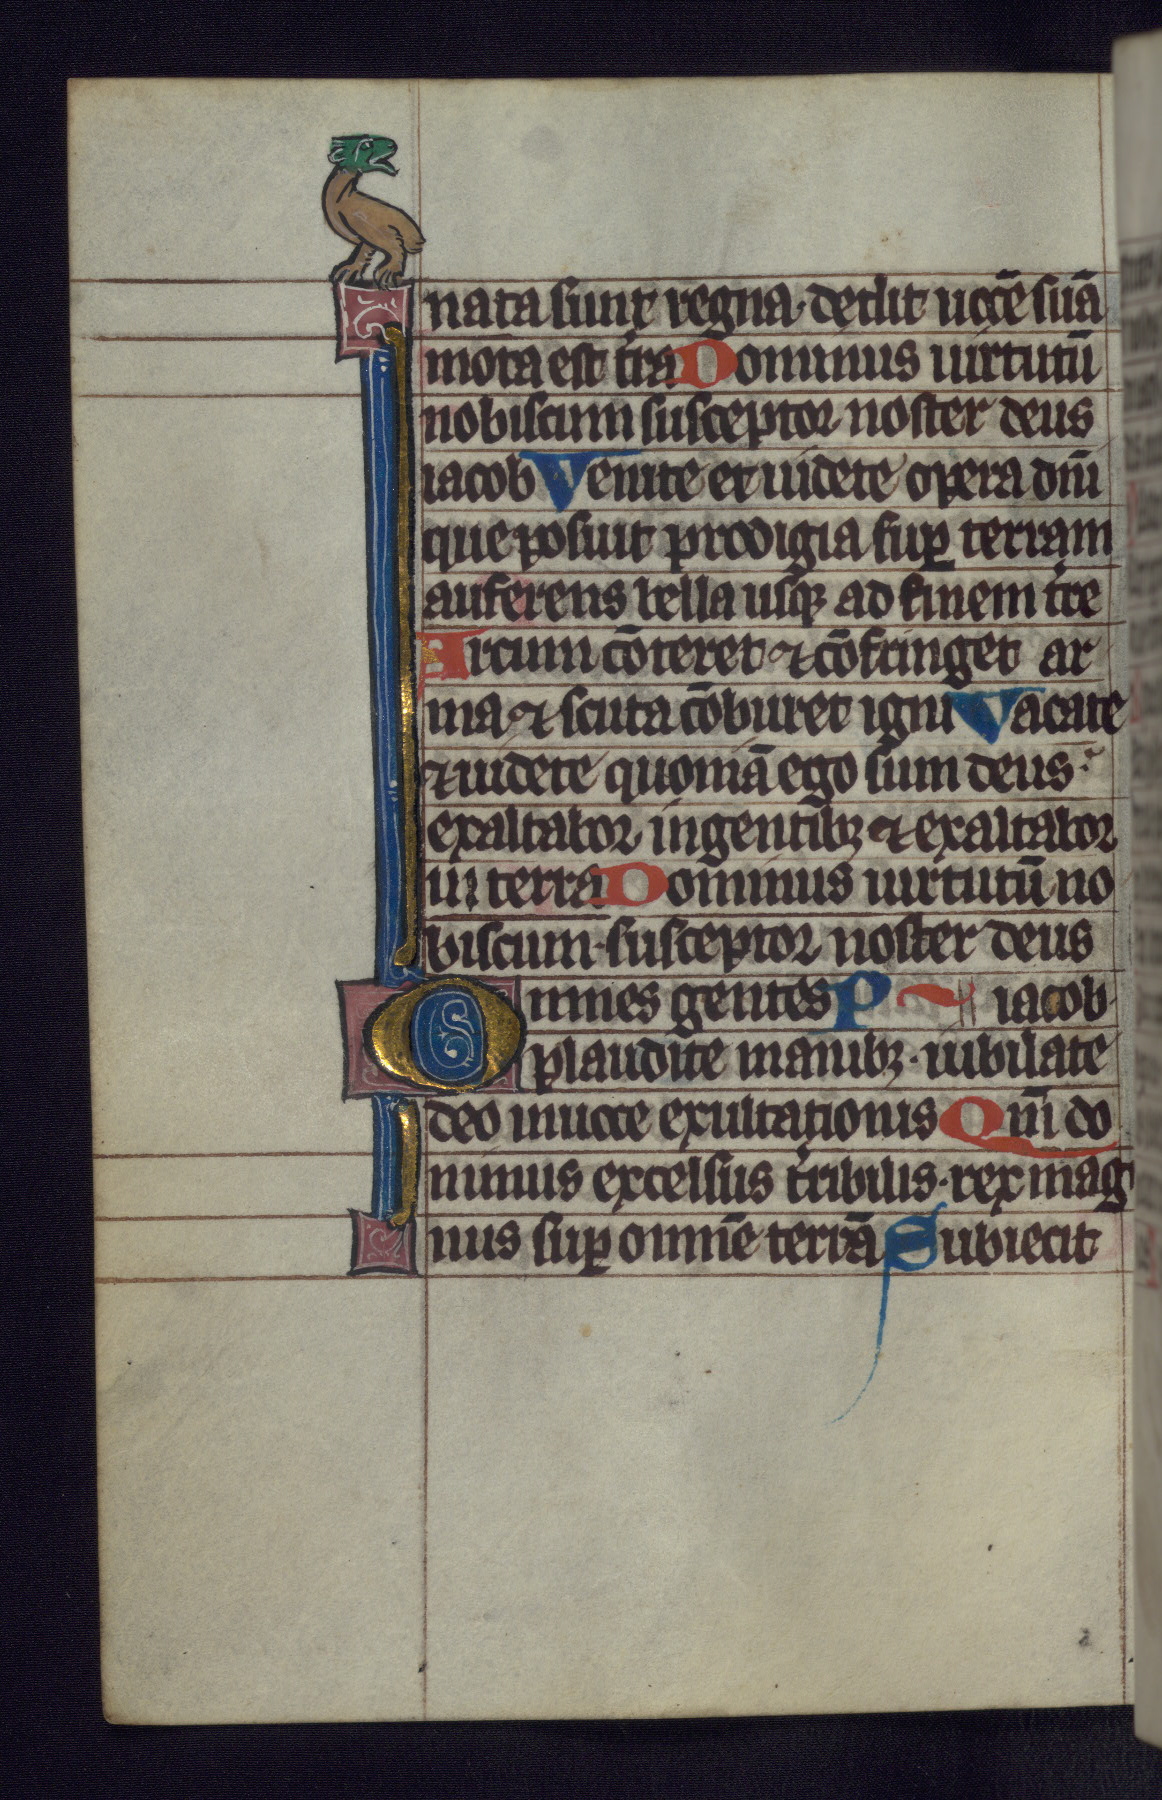 nata sunt regna· dedit uocē suā
mota est t̄ra Dominus uirtutū
nobiscum susceptor noster deus
iacob Venite et uidete opera dn̄i
que posuit prodigia sup̱ terram
auferens bella usq̨ ad finem t̄re
Arcum cōteret ⁊ cōfringet ar
ma ⁊ scuta cōburet igni Vacate
⁊ uidete quoniā ego sum deus·
exaltabor in gentibꝫ ⁊ exaltabor
in terra Dominus uirtutū no
biscum· susceptor noster deus
Omnes gentes P iacob·
plaudite manibꝫ· iubilate
deo in uoce exultationis Qm̄ do
minus excelsus t̄ribilis· rex mag
nus sup̱ omnē terrā Subiecit